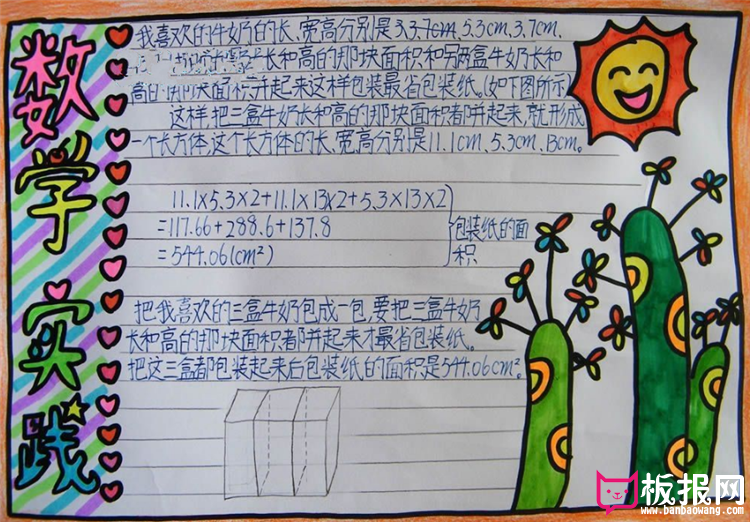 数学实践
我喜欢的牛奶的长、宽高分别是3.3.7cm、5.3cm、3.7cm、
长和高的那块面积和另两盒牛奶长和
块面积并起来这样包装最省包装纸。(如下图所示)
这样把三盒牛奶长和高的那块面积都并起来,就形成
一个长方体,这个长方体的长、宽高分别是11.1cm、5.3cm、13cm。
11.1×5.3×2+11.1×13×2+5.3×13×2
=117.66+288.6+137.8
=544.06(cm²)
包装纸的面
积
把我喜欢的三盒牛奶包成一包,要把三盒牛奶
长和高的那块面积都并起来才最省包装纸。
把这三盒都包装起来后包装纸的面积是544.06cm²。
板报网
www.banbaowang.com